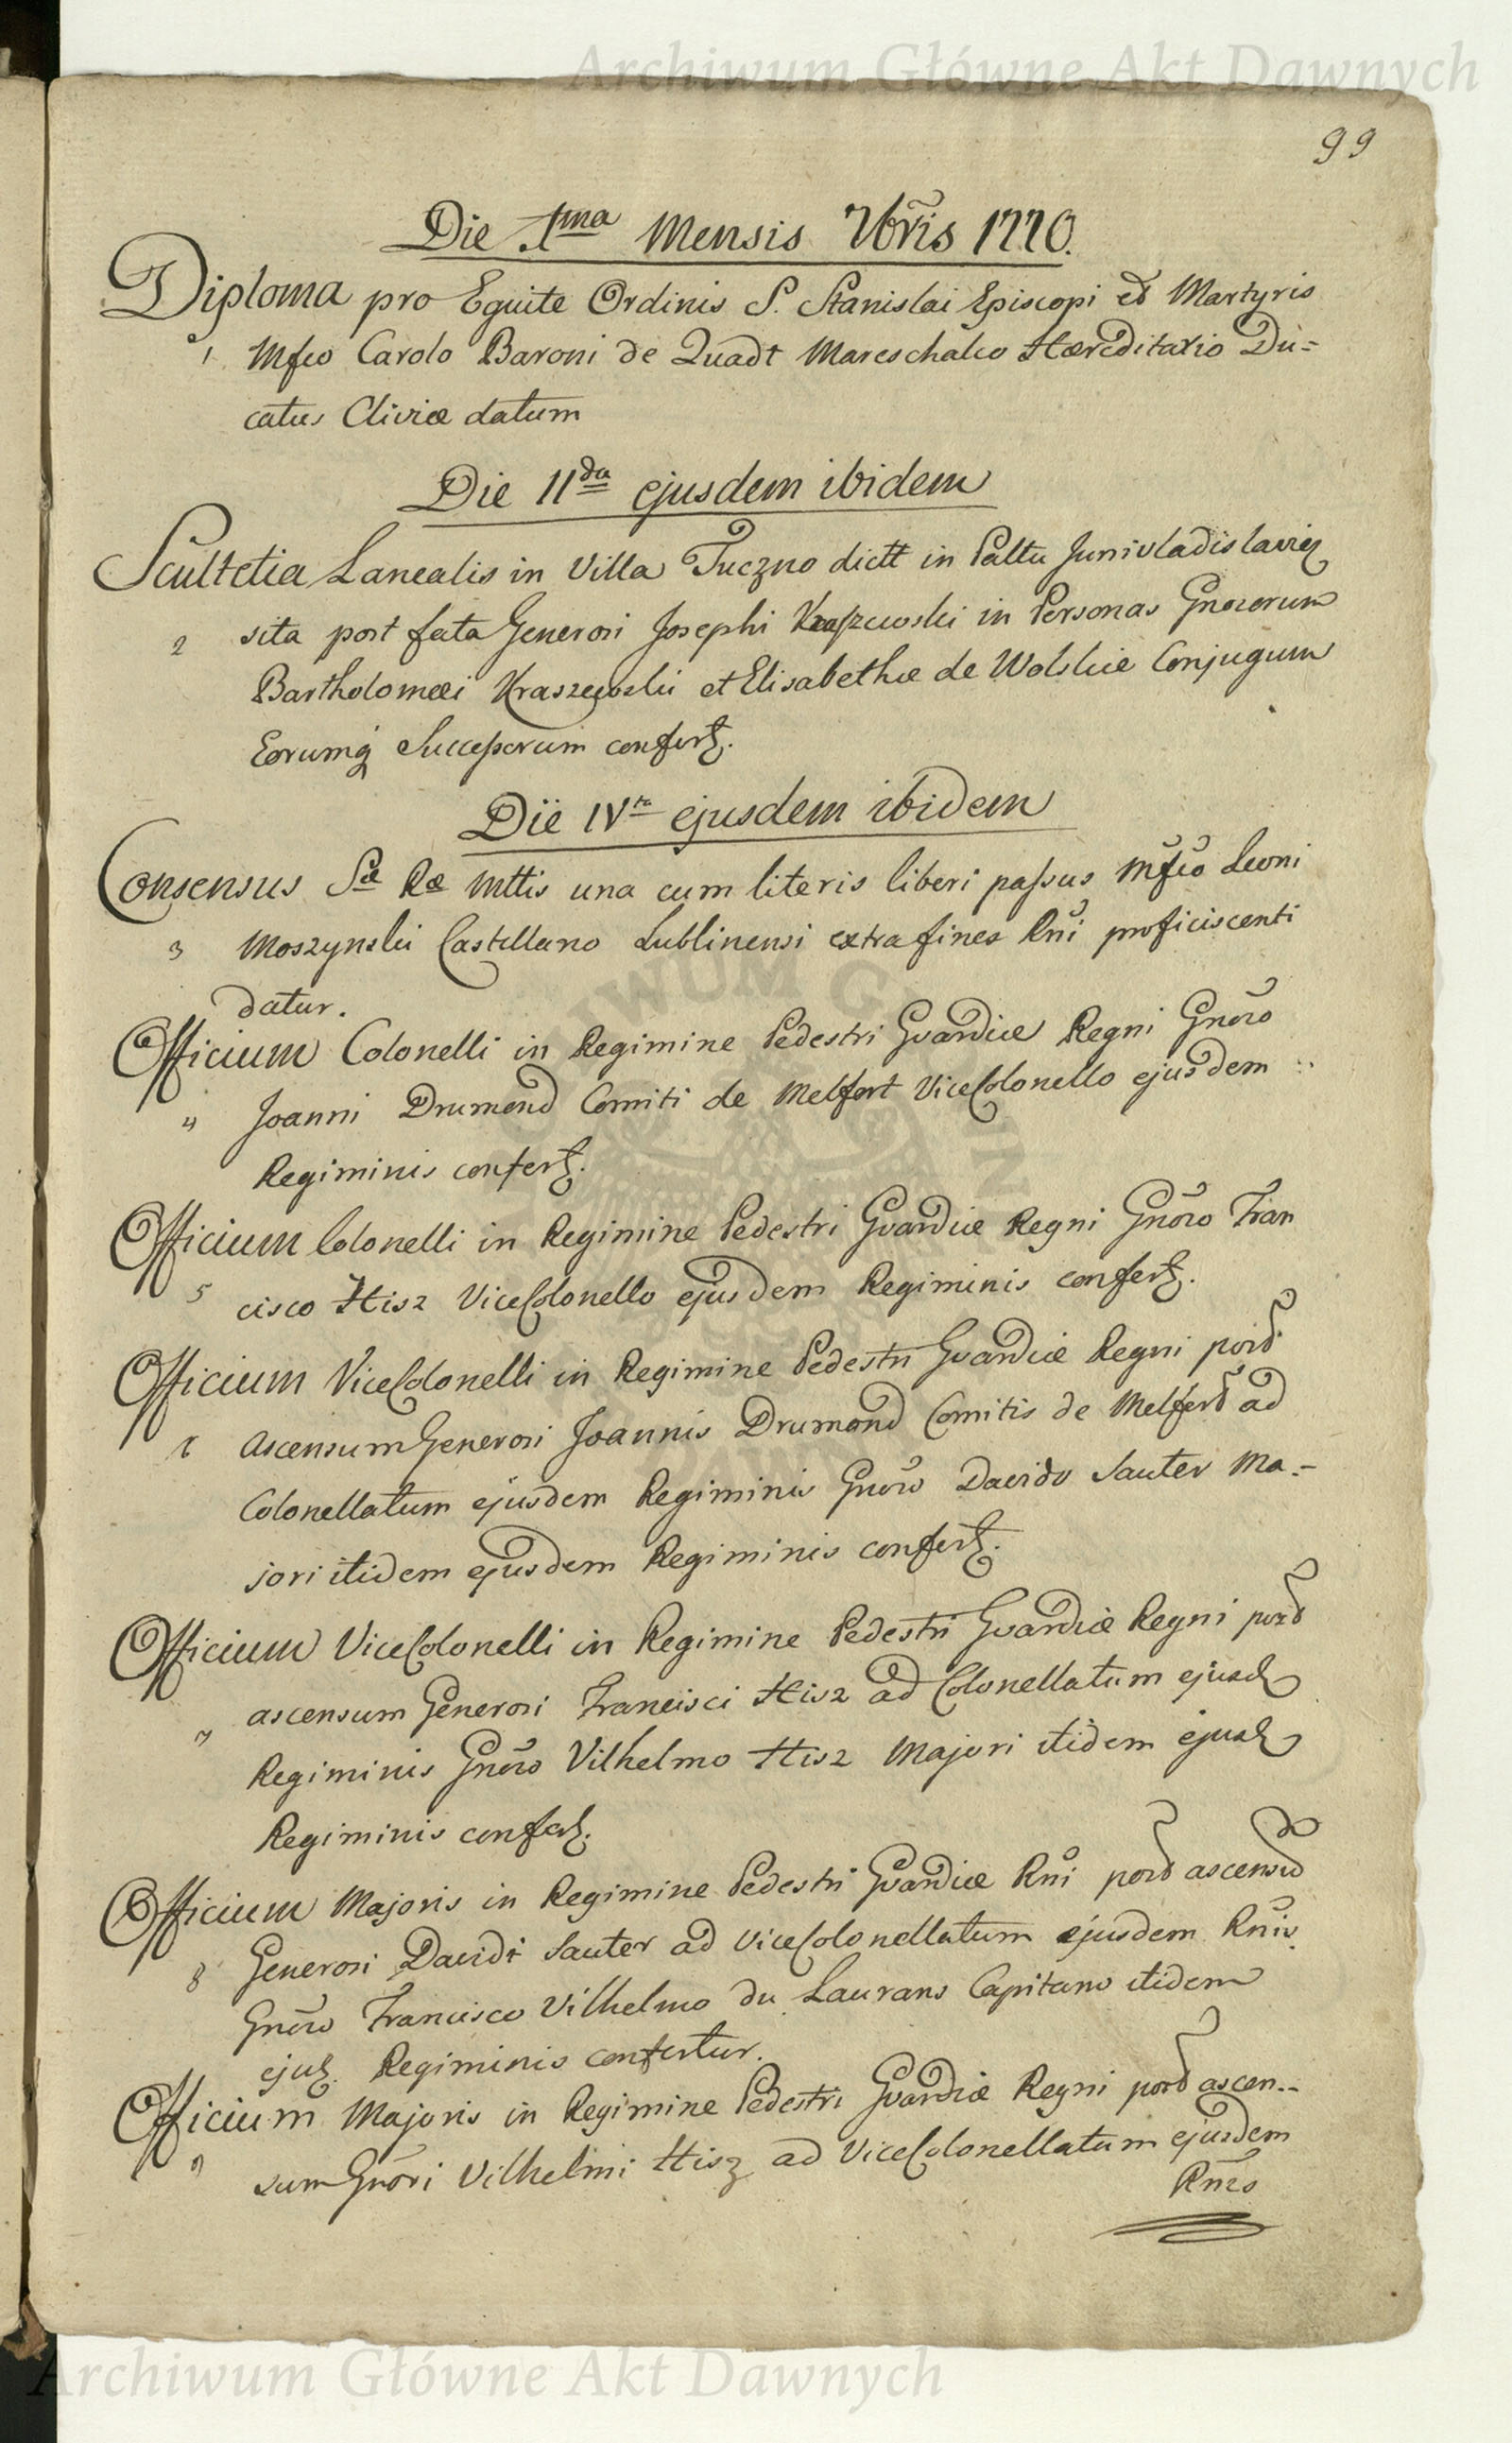 Archiwum Główne Akt Dawnych
99
Die 1ma Mensis 7bris 1770.
Diploma pro Equite Ordinis S. Stanislai Episcopi et Martyris
1. Mfco Carolo Baroni de Quadt Mareschalco Hæreditario Du=
catus Cliviæ datum
Die IIda ejusdem ibidem
Scultetia Lanealis in Villa Tuczno dictt in Palttu Junivladislavien
2 sita post fata Generosi Josephi Kraszewski in Personas Gnosorum
Bartholomæi Kraszewski et Elisabethæ de Wolskie Conjugum
Eorumq Successorum confert.
Die IVta ejusdem ibidem
Consensus Sæ Ræ Mttis una cum literis liberi passus Mfco Leoni
3 Moszynski Castellano Lublinensi extra fines Rni proficiscenti
datur.
Officium Colonelli in Regimine Pedestri Gvardiæ Regni Gnoso
4 Joanni Drumond Comiti de Melfort ViceColonello ejusdem
Regiminis confert.
Officium Colonelli in Regimine Pedestri Gvardiæ Regni Gnoso Fran
5 cisco Hisz ViceColonello ejusdem Regiminis confert.
Officium ViceColonelli in Regimine Pedestri Gvardiæ Regni post
6 ascensum Generosi Joannis Drumond Comitis de Melfert ad
Colonellatum ejusdem Regiminis Gnoso Davido Sauter Ma=
jori itidem ejusdem Regiminis confert.
Officium ViceColonelli in Regimine Pedestri Gvardiæ Regni post
7 ascensum Generosi Francisci Hisz ad Colonellatum ejusd
Regiminis Gnoso Vilhelmo Hisz Majori itidem ejusd
Regiminis confert.
Officium Majoris in Regimine Pedestri Gvardiæ Rni post ascensu
8 Generosi Davidi Sauter ad ViceColonellatum ejusdem Rnis
Gnoso Francisco Vilhelmo du Laurans Capitano itidem
ejusd. Regiminis confertur.
Officium Majoris in Regimine Pedestri Gvardiæ Regni post ascen=
9 sum Gnosi Vilhelmi Hisz ad ViceColonellatum ejusdem
Archiwum Główne Akt Dawnych